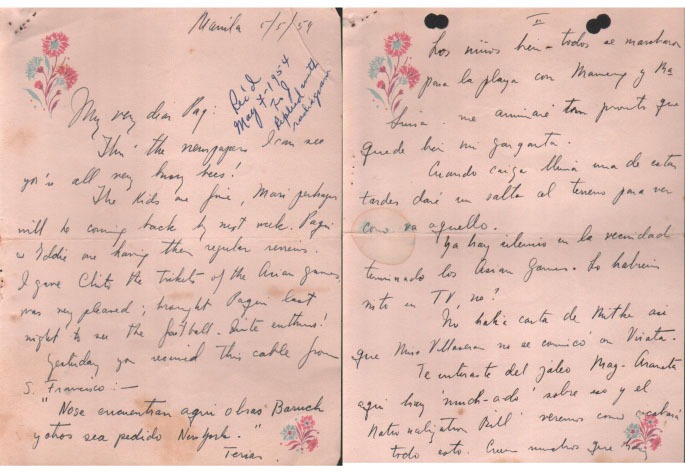 Manila 5/5/54
Rec'd
May 7-1954
My very dear Paq:
Thru the newspapers I can see
you're all very busy bees!
The kids are fine, Mari perhaps
will be coming back by next week. Paqui
& Eddie are having their regular
I gave Chito the tickets of the Asian games,
was very pleased; brought Paqui last
night to see the football. Quite enthused!
Yesterday you received this cable from
S. Francisco:-
"Nose encuentran aqui obras Baruch
yotros sea pedido New York."
Terias.
II
Los niños bien - todos se marcharon
para la playa con Mameng y Ma
Luisa. me animaré tan pronto que
quede bien mi garganta.
Cuando caiga lluvia una de estas
tardes daré un salto al terreno para ver
como va aquello.
Ya hay silencio en la vecindad
terminado los Asian Games. Lo habreis
visto en TV, no?
No había carta de así
que Miss Villasevran no se comicó con Virata.
Te enteraste del jaleo Mag-Araneta
aqui hay 'much-ado' sobre eso y el
Nationalization Bill' veremos como acabará
todo esto. Creen muchos que hay